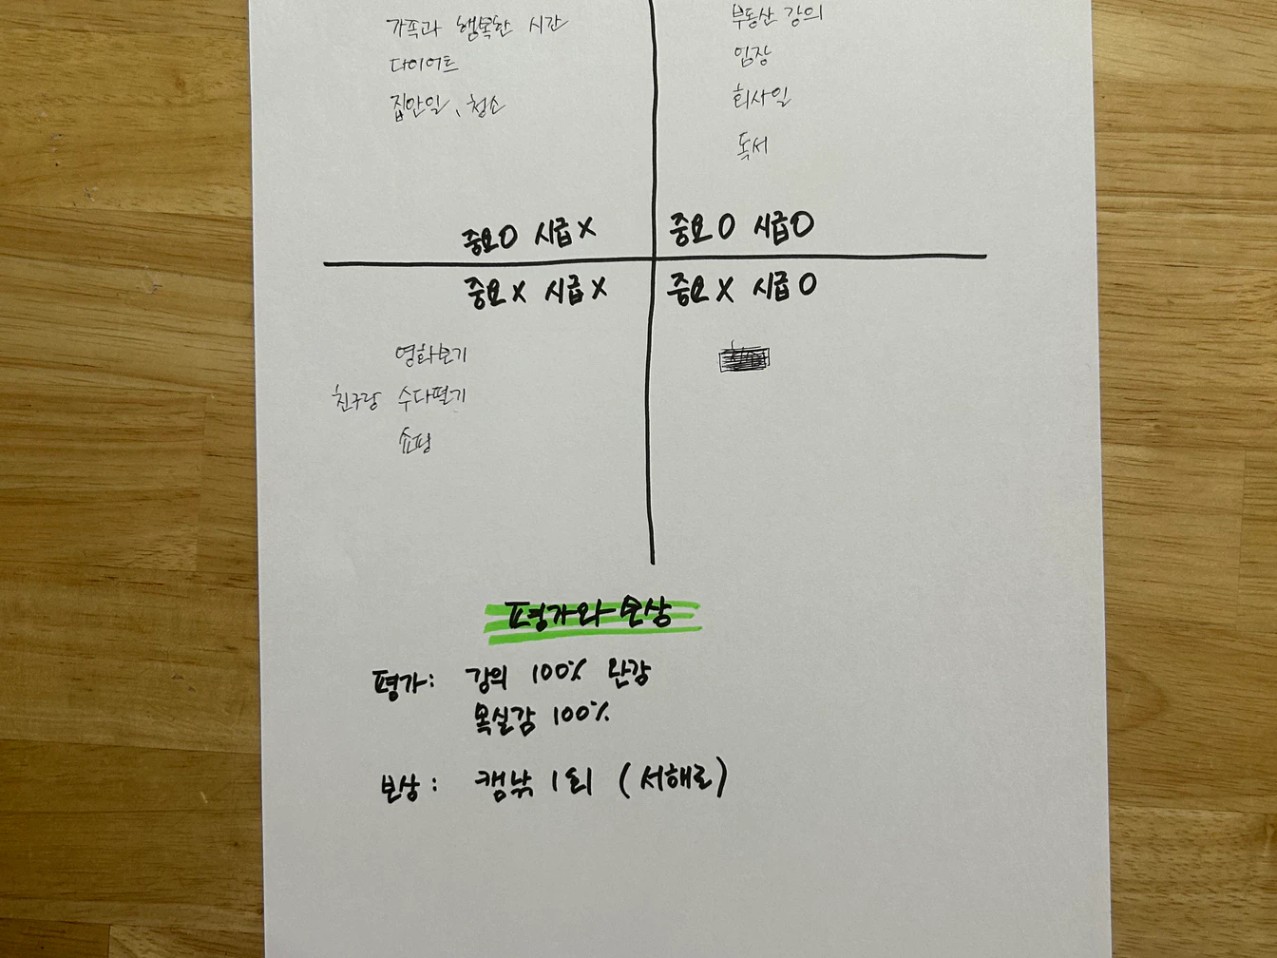 가족과 행복한 시간
다이어트
집안일, 청소
부동산 강의
임장
회사일
독서
중요O 시급X
중요O 시급O
중요X 시급X
중요X 시급O
영화보기
친구랑 수다떨기
쇼핑
평가와 보상
평가: 강의 100% 완강
목실감 100%
보상: 캠낚 1회 (서해로)